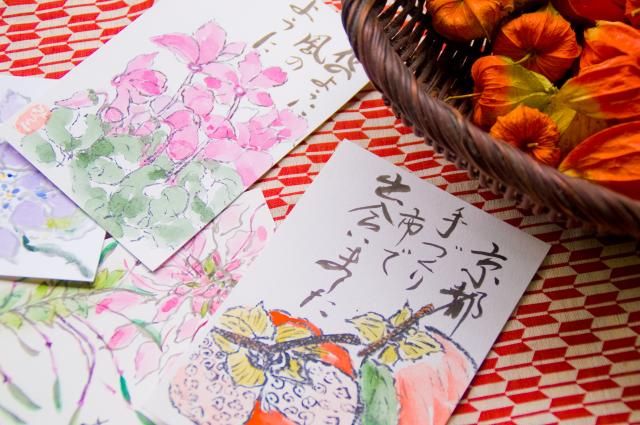 京都
手づくり
市で
出会いました
風の
ように